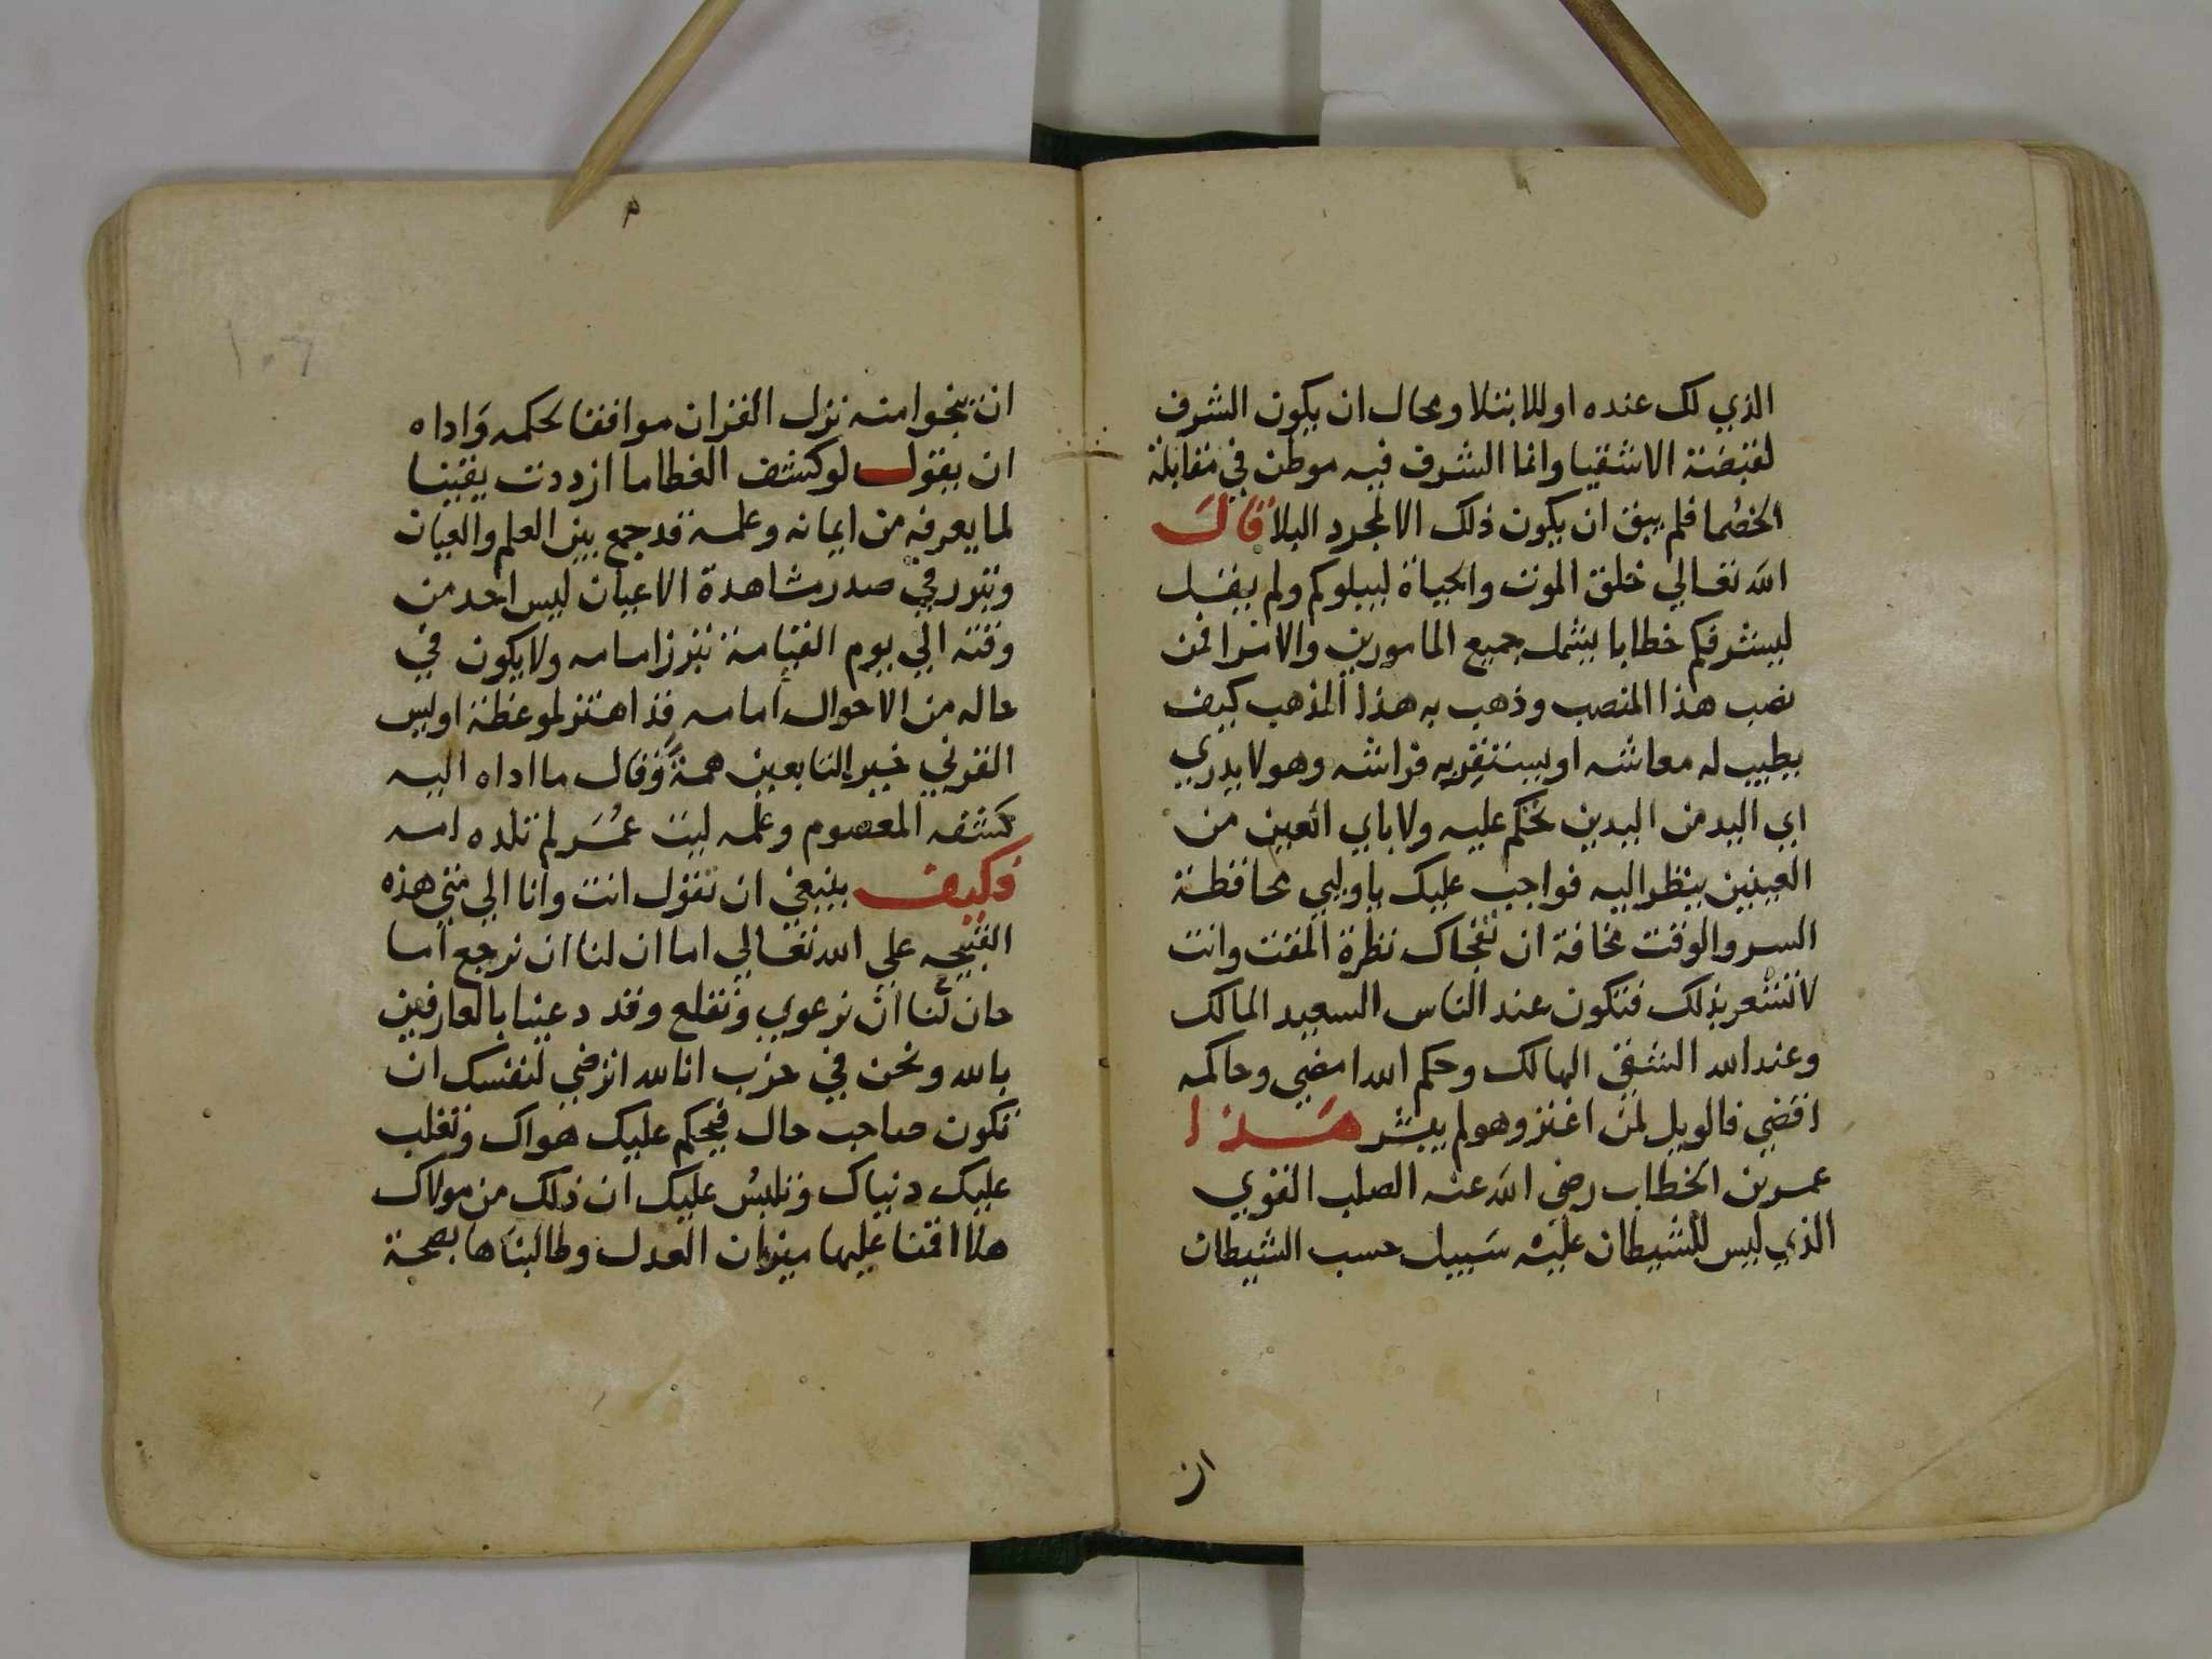 الذي لك عنده او للابتلا ومحال ان يكون الشرف
لقبضة الاشقيا وانما الشرف فيه موطن في مقابلة
الخصما فلم يبق ان يكون ذلك الا لمجرد البلا قال
الله تعالي خلق الموت والحياة ليبلوكم ولم يقل
ليشرفكم خطابا يشمل جميع المامورين والامرا فمن
نصب هذا المنصب وذهب به هذا المذهب كيف
يطيب له معاشه او يستقر به فراشه وهو لا يدري
اي اليد من اليدين تحكم عليه ولا باي العين من
العينين ينظر اليه فواجب عليك يا وليي محافظة
السر والوقت مخافة ان تفجاك نظرة المقت وانت
لا تشعر بذلك فتكون عند الناس السعيد المالك
وعند الله الشقي الهالك وحكم الله امضي وحاكمه
اقضي فالويل لمن اغتر وهو لم يبشر هذا
عمر بن الخطاب رضي الله عنه الصلب القوي
الذي ليس للشيطان عليه سبيل حسب الشيطان
ان
١٠٦
ان ينجوا منه نزل القران موافقا لحكمه واداه
ان يقول لو كشف الغطا ما ازددت يقينا
لما يعرفه من ايمانه وعلمه قد جمع بين العلم والعيان
وتبور في صدر مشاهدة الاعيان ليس احد من
وقته الي يوم القيامة تبرز امامه ولا يكون في
حاله من الاحوال امامه قد اهتز لموعظة اويس
القرني خير التابعين همة وقال ما اداه اليه
كشفه المعصوم وعلمه ليت عمر لم تلده امه
فكيف ينبغي ان تقول انت وانا الي متي هذه
القبيحه علي الله تعالي اما ان لنا ان نرجع اما
حان لنا ان نرعوي ونقلع وقد دعينا بالعارفين
بالله ونحن في حزب انا لله اترضي لنفسك ان
تكون صاحب حال فيحكم عليك هواك وتغلب
عليك دنياك وتلبس عليك ان ذلك من مولاك
هلا اقمنا عليها ميزان العدل وطالبناها بصحة